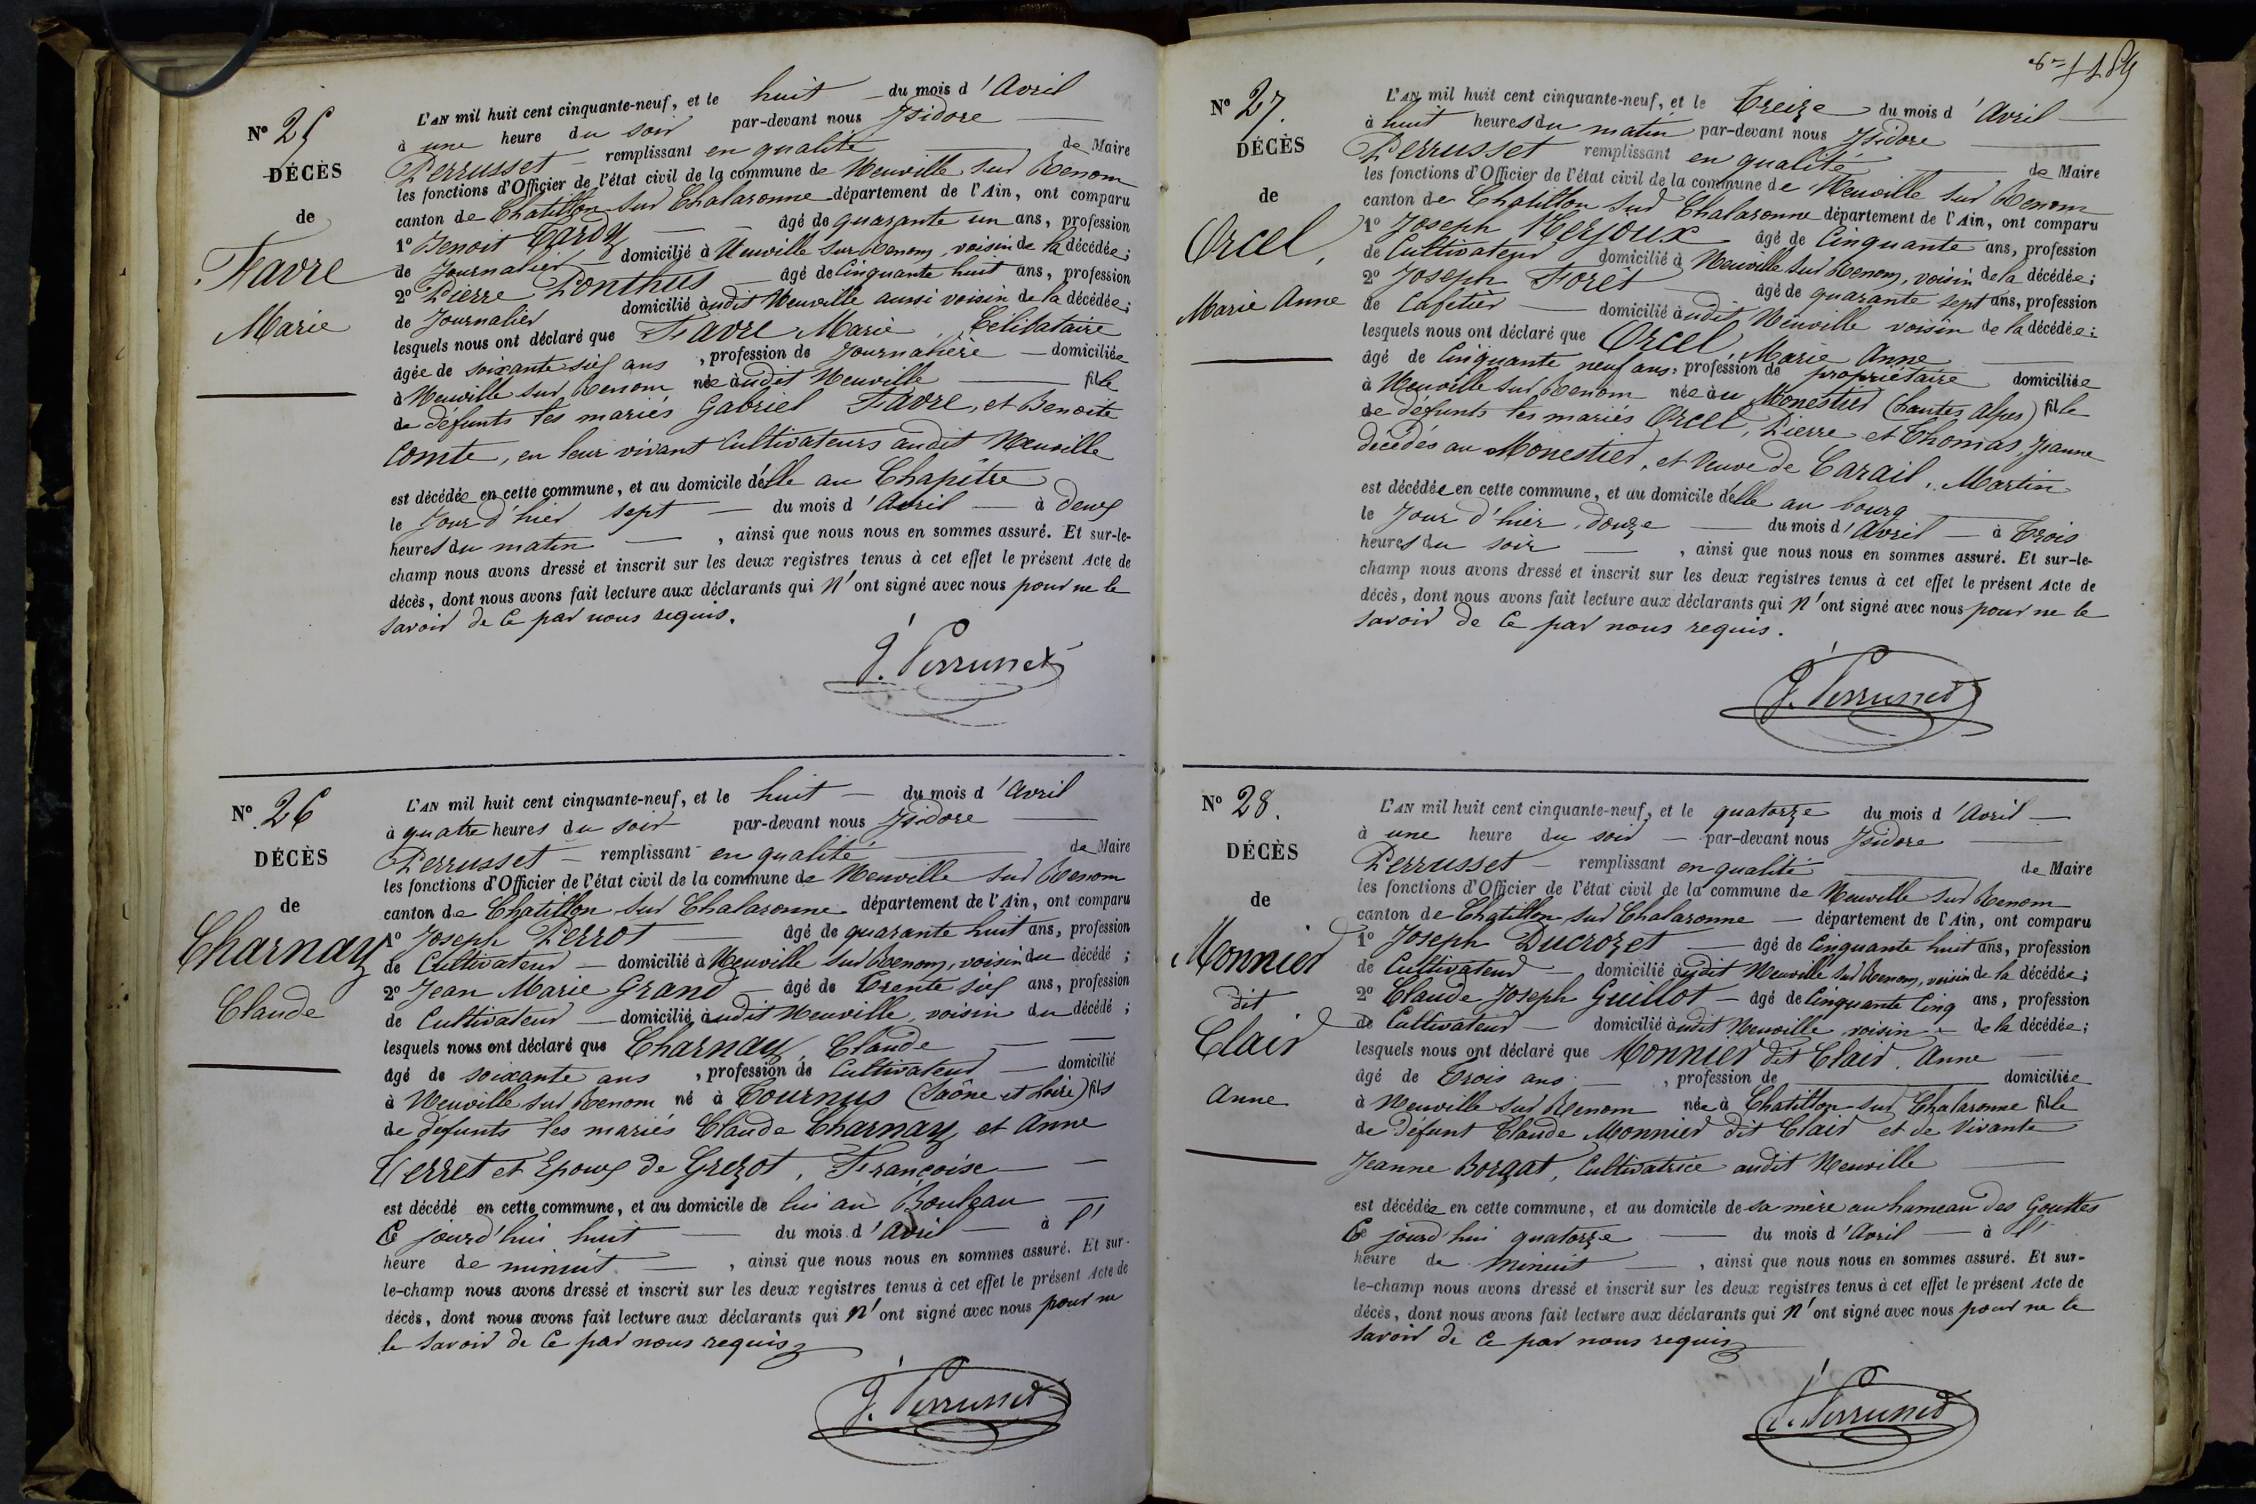 N° 25
DÉCÈS
de
Favre
Marie
L'AN mil huit cent cinquante-neuf, et le huit du mois d'Avril
à une heure du soir par-devant nous Isidore
Perrusset remplissant en qualité de Maire
les fonctions d'Officier de l'état civil de la commune de Neuville sur Renom
canton de Chatillon sur Chalaronne département de l'Ain, ont comparu
1° Benoit Tardy âgé de quarante un ans, profession
de Journalier domicilié à Neuville sur Renom, voisin de la décédée;
2° Pierre Ponthus âgé de Cinquante huit ans, profession
de Journalier domicilié audit Neuville aussi voisin de la décédée;
lesquels nous ont déclaré que Favre Marie, Célibataire
âgée de soixante six ans, profession de Journalière domiciliée
à Neuville sur Renom née audit Neuville fille
de défunts les mariés Gabriel Favre, et Benoite
Comte, en leur vivant Cultivateurs audit Neuville
est décédée en cette commune, et au domicile d'elle au Chapitre
le Jour d'hier sept du mois d'Avril à deux
heures du matin, ainsi que nous nous en sommes assuré. Et sur-le-
champ nous avons dressé et inscrit sur les deux registres tenus à cet effet le présent Acte de
décès, dont nous avons fait lecture aux déclarants qui n'ont signé avec nous pour ne le
savoir de ce par nous requis.
I. Perrusset
N° 26
DÉCÈS
de
Charnay
Claude
L'AN mil huit cent cinquante-neuf, et le huit du mois d'Avril
à quatre heures du soir par-devant nous Isidore
Perrusset remplissant en qualité de Maire
les fonctions d'Officier de l'état civil de la commune de Neuville sur Renom
canton de Chatillon sur Chalaronne département de l'Ain, ont comparu
1° Joseph Perrot âgé de quarante huit ans, profession
de Cultivateur domicilié à Neuville sur Renom, voisin du décédé;
2° Jean Marie Grand âgé de Trente six ans, profession
de Cultivateur domicilié audit Neuville, voisin du décédé;
lesquels nous ont déclaré que Charnay, Claude
âgé de soixante ans, profession de Cultivateur domicilié
à Neuville sur Renom né à Tournus (Saône et Loire) fils
de défunts les mariés Claude Charnay et Anne
Verret et Epoux de Grezot, Françoise
est décédé en cette commune, et au domicile de lui au Bouleau
Ce jourd'hui huit du mois d'Avril à l'
heure de minuit, ainsi que nous nous en sommes assuré. Et sur-
le-champ nous avons dressé et inscrit sur les deux registres tenus à cet effet le présent Acte de
décès, dont nous avons fait lecture aux déclarants qui n'ont signé avec nous pour ne
le savoir de ce par nous requis
I. Perrusset
189
N° 27.
DÉCÈS
de
Orcel,
Marie Anne
L'AN mil huit cent cinquante-neuf, et le Treize du mois d'Avril
à huit heures du matin par-devant nous Isidore
Perrusset remplissant en qualité de Maire
les fonctions d'Officier de l'état civil de la commune de Neuville sur Renom
canton de Chatillon sur Chalaronne département de l'Ain, ont comparu
1° Joseph Merjoux âgé de Cinquante ans, profession
de Cultivateur domicilié à Neuville sur Renom, voisin de la décédée;
2° Joseph Forêt âgé de quarante sept ans, profession
de Cafetier domicilié audit Neuville voisin de la décédée;
lesquels nous ont déclaré que Orcel, Marie Anne
âgé de Cinquante neuf ans, profession de propriétaire domiciliée
à Neuville sur Renom née au Monestier (hautes alpes) fille
de défunts les mariés Orcel, Pierre et Thomas, Jeanne
décédés au Monestier, et Veuve de Carail, Martin
est décédée en cette commune, et au domicile d'elle au bourg
le Jour d'hier, douze du mois d'Avril à Trois
heures du soir, ainsi que nous nous en sommes assuré. Et sur-le-
champ nous avons dressé et inscrit sur les deux registres tenus à cet effet le présent Acte de
décès, dont nous avons fait lecture aux déclarants qui n'ont signé avec nous pour ne le
savoir de ce par nous requis.
I. Perrusset
N° 28.
DÉCÈS
de
Monnier
dit
Clair
Anne
L'AN mil huit cent cinquante-neuf, et le quatorze du mois d'Avril
à une heure du soir par-devant nous Isidore
Perrusset remplissant en qualité de Maire
les fonctions d'Officier de l'état civil de la commune de Neuville sur Renom
canton de Chatillon sur Chalaronne département de l'Ain, ont comparu
1° Joseph Ducrozet âgé de Cinquante huit ans, profession
de Cultivateur domicilié audit Neuville sur Renom, voisin de la décédée;
2° Claude Joseph Guillot âgé de Cinquante Cinq ans, profession
de Cultivateur domicilié audit Neuville voisin de la décédée;
lesquels nous ont déclaré que Monnier dit Clair, Anne
âgé de Trois ans, profession de domiciliée
à Neuville sur Renom née à Chatillon sur Chalaronne fille
de défunt Claude Monnier dit Clair et de Vivante
Jeanne Borgat, Cultivatrice audit Neuville
est décédée en cette commune, et au domicile de sa mère au hameau des Gouttes
Ce jourd'hui quatorze du mois d'Avril à l'
heure de minuit, ainsi que nous nous en sommes assuré. Et sur-
le-champ nous avons dressé et inscrit sur les deux registres tenus à cet effet le présent Acte de
décès, dont nous avons fait lecture aux déclarants qui n'ont signé avec nous pour ne le
savoir de ce par nous requis
I. Perrusset